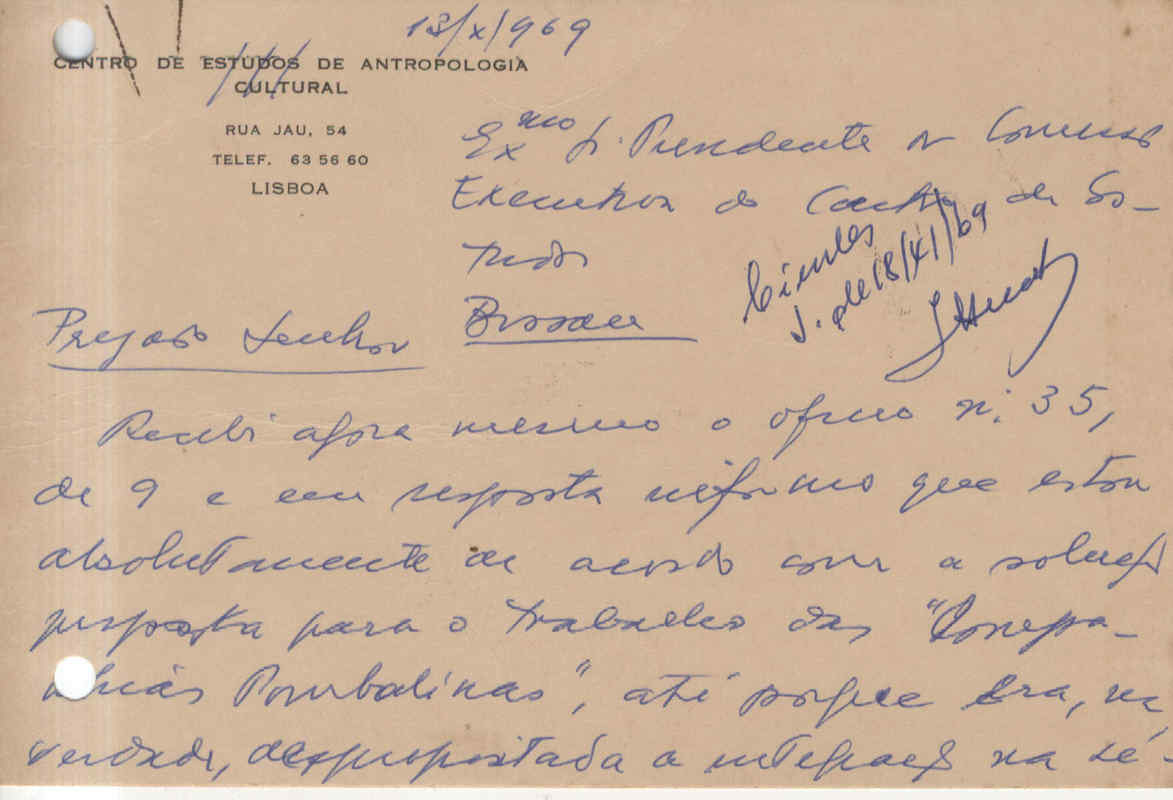 13/X/969
CENTRO DE ESTUDOS DE ANTROPOLOGIA
CULTURAL
RUA JAU, 54
TELEF. 63 56 60
LISBOA
Exmo Sr. Presidente da Comissão
Executiva do Centro de Es-
tudos
Bissau
J. de 18/XI/69
Prezado Senhor
Recebi agora mesmo o ofício n.º 35,
de 9 e em resposta informo que estou
absolutamente de acordo com a solução
proposta para o trabalho das "Compa-
nhias Pombalinas", até porque era, na
verdade, despropositada a integração na sé-